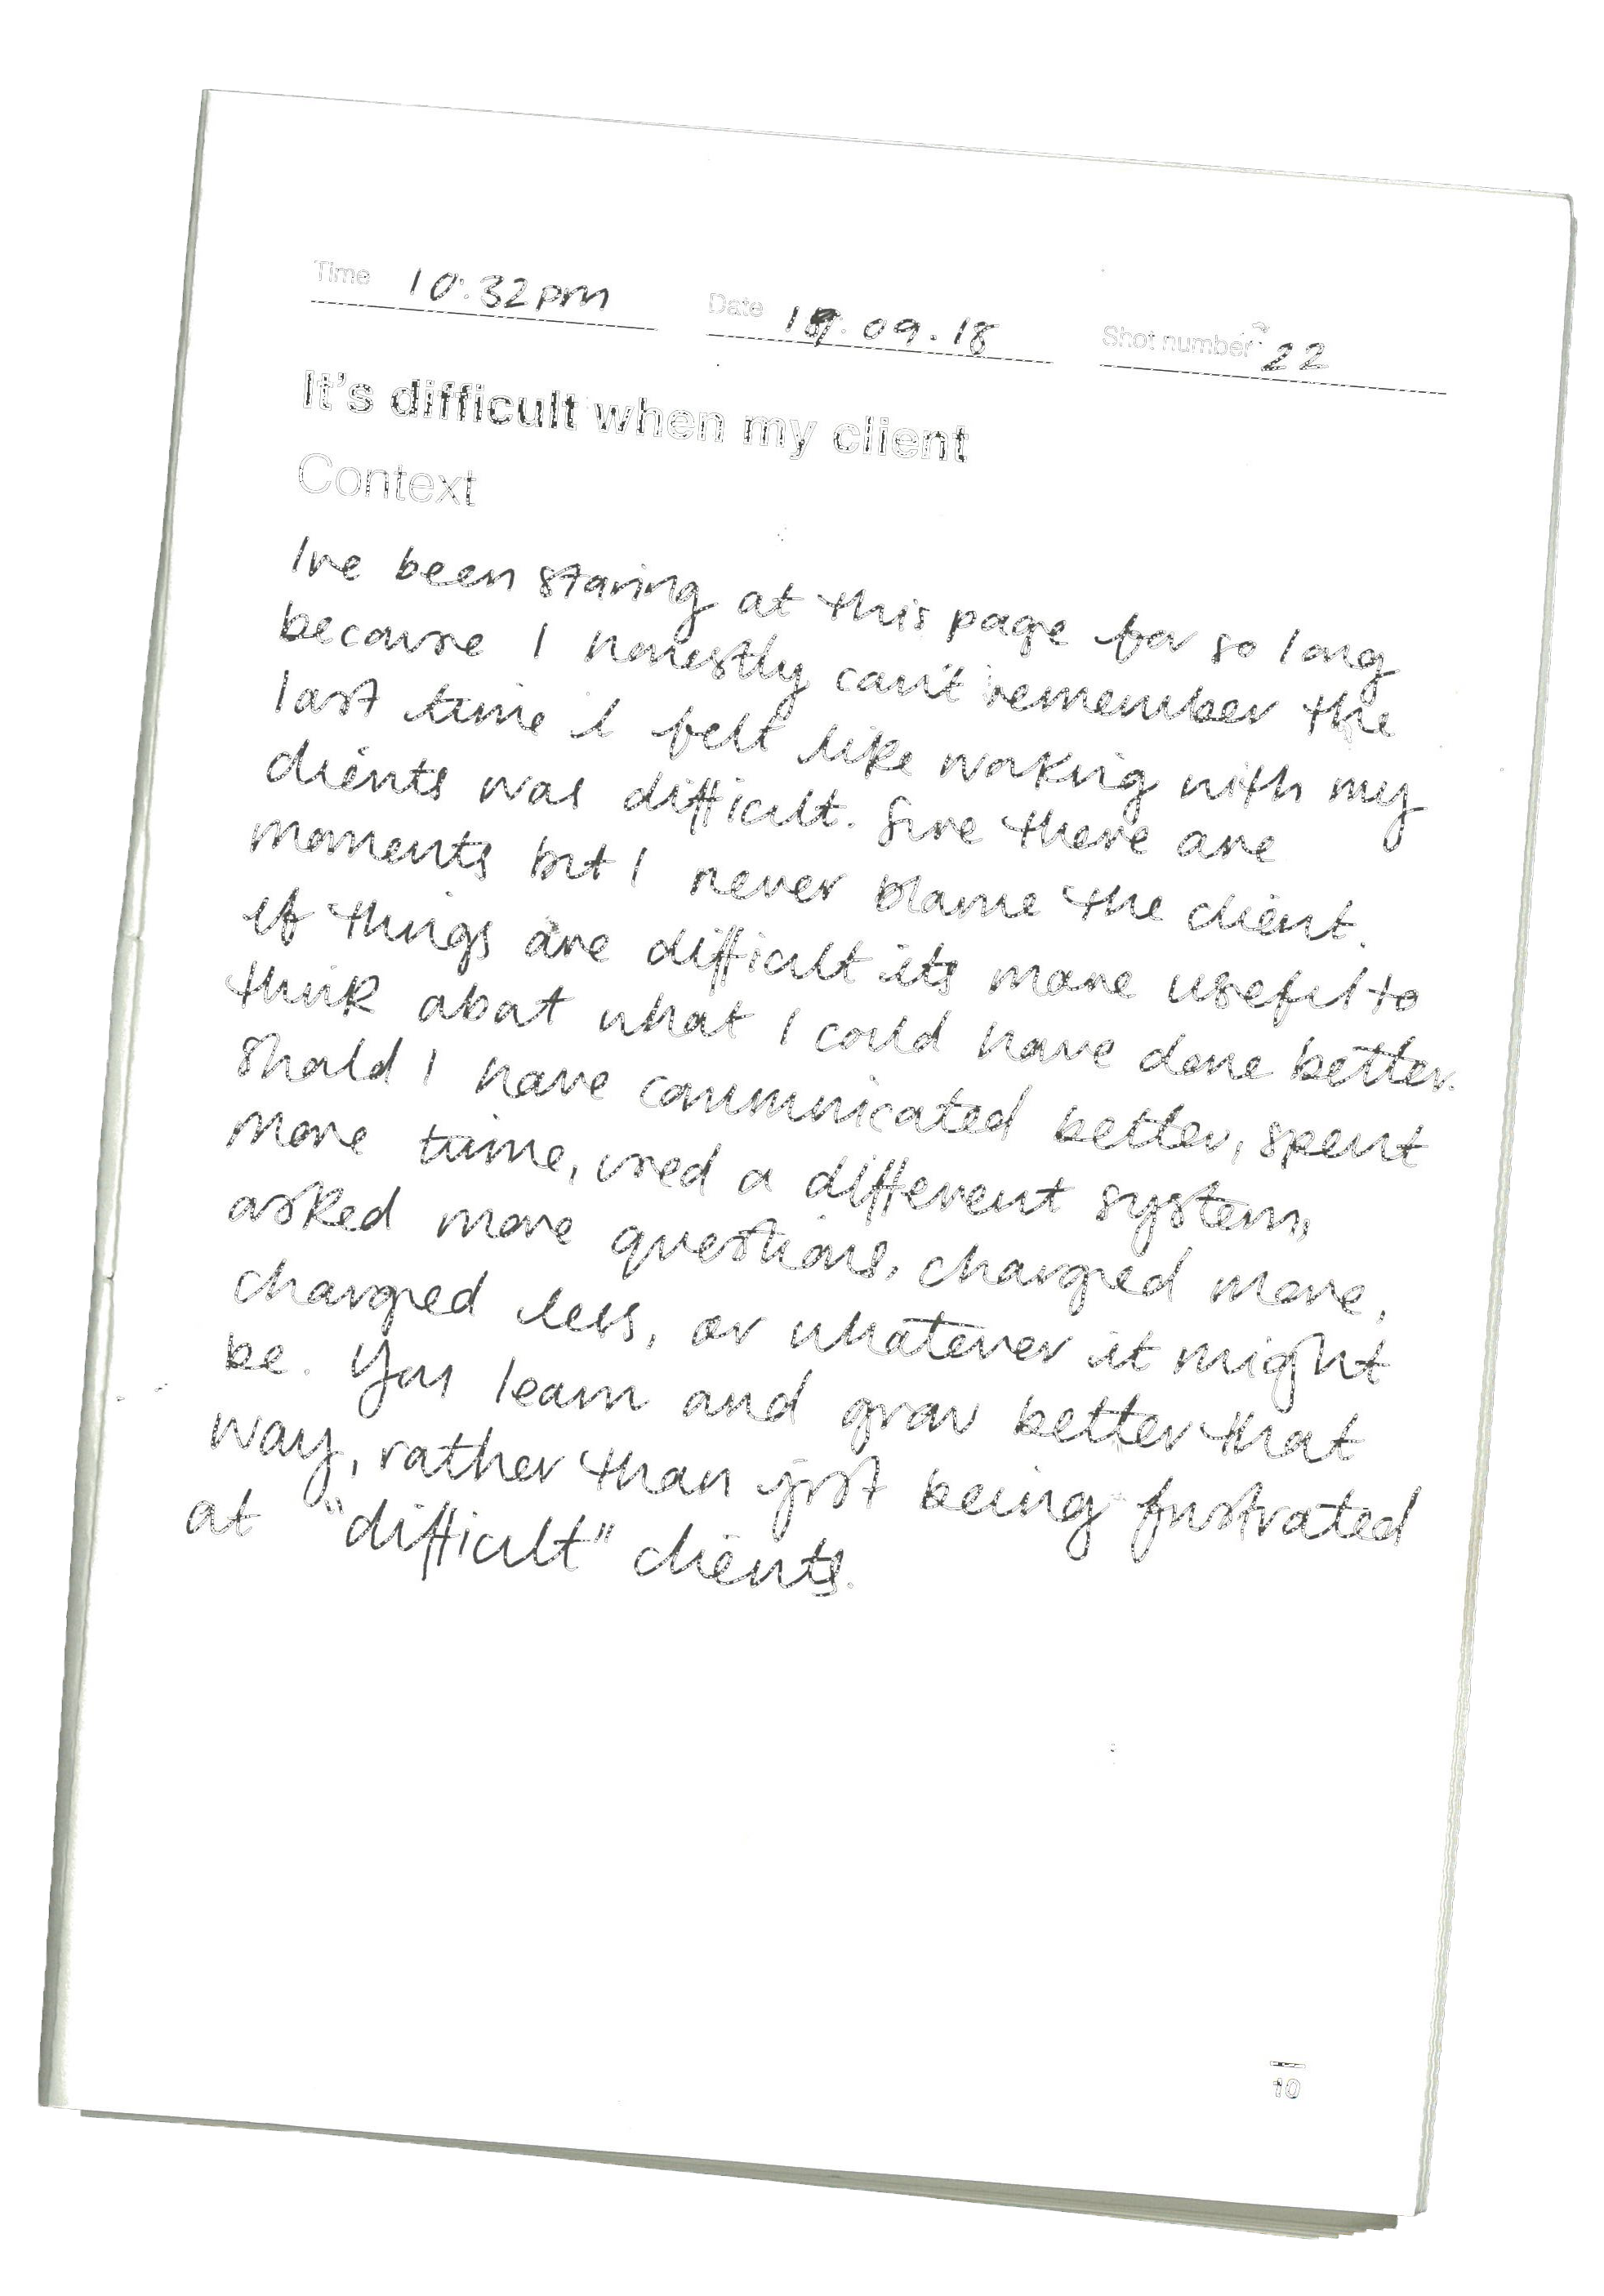 Time 10.32pm Date 19.09.18 Shot number 22
It's difficult when my client
Context
Ive been staring at this page for so long
because I honestly can't remember the
last time I felt like working with my
clients was difficult. Sure there are
moments but I never blame the client.
If things are difficult its more useful to
think about what I could have done better.
Should I have communicated better, spent
more time, used a different system,
asked more questions, charged more,
charged less, or whatever it might
be. You learn and grow better that
way, rather than just being frustrated
at "difficult" clients.
10